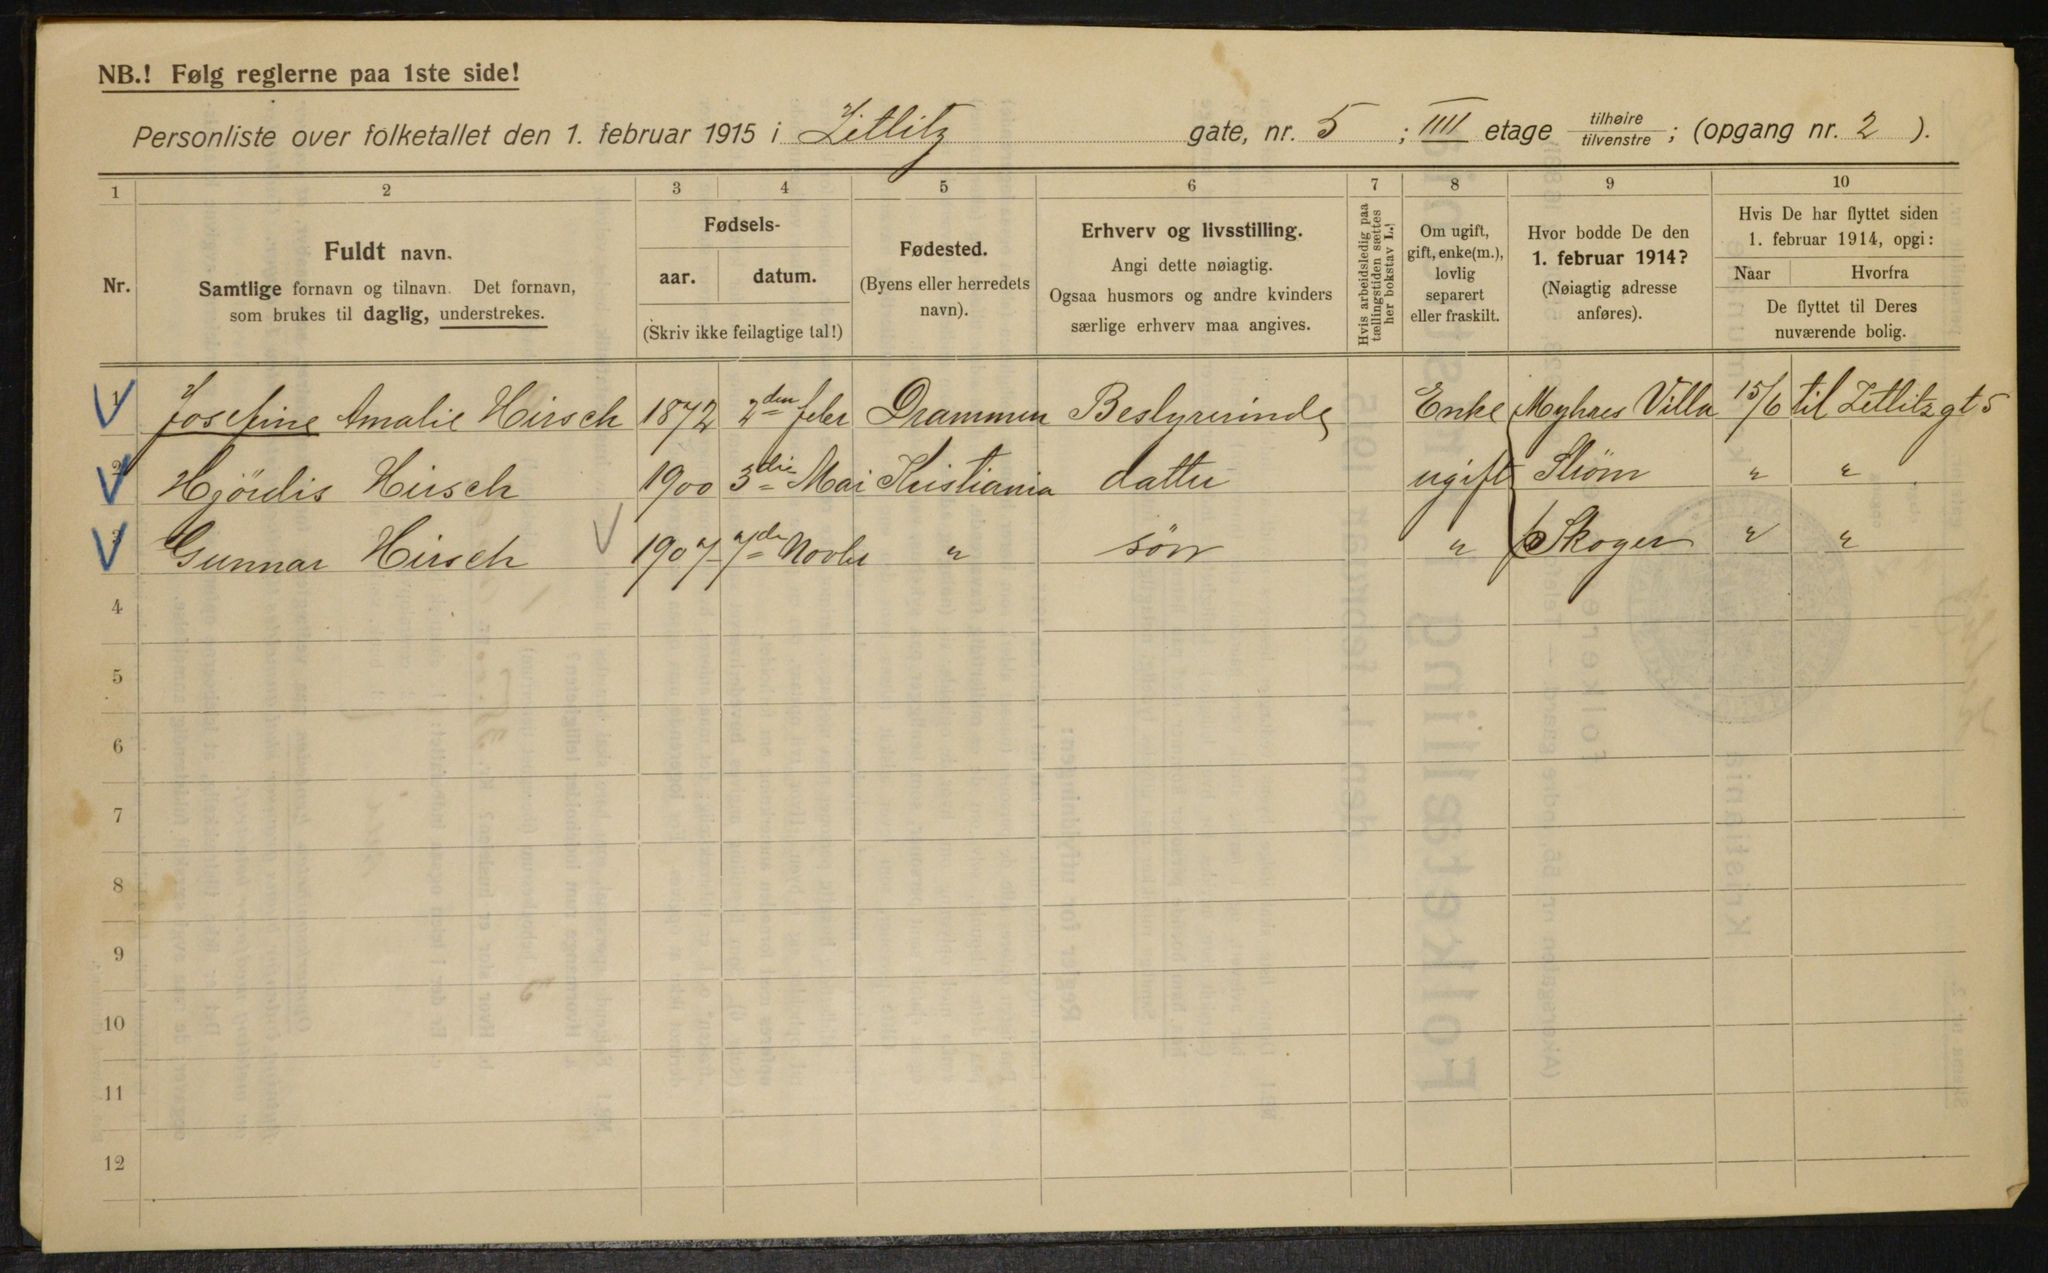 NB.! Følg reglerne paa 1ste side!
Personliste over folketallet den 1. februar 1915 i Zetlitz gate, nr. 5 ; IIII etage tilhøire tilvenstre ; (opgang nr. 2 ).
1 2 3 4 5 6 7 8 9 10
Nr.
Fuldt navn.
Samtlige fornavn og tilnavn. Det fornavn,
som brukes til daglig, understrekes.
Fødsels-
aar. datum.
(Skriv ikke feilagtige tal!)
Fødested.
(Byens eller herredets
navn).
Erhverv og livsstilling.
Angi dette nøiagtig.
Ogsaa husmors og andre kvinders
særlige erhverv maa angives.
Hvis arbeidsledig paa
tællingstiden sættes
her bokstav L.!
Om ugift,
gift, enke(m.),
lovlig
separert
eller fraskilt.
Hvor bodde De den
1. februar 1914?
(Nøiagtig adresse
anføres).
Hvis De har flyttet siden
1. februar 1914, opgi:
Naar Hvorfra
De flyttet til Deres
nuværende bolig.
1 Josefine Amalie Hirsch 1872 2den feber Drammen Bestyrerinde Enke Myhres Villa 15/6 til Zetlitzgt 5
2 Hjördis Hirsch 1900 3die Mai Kristiania datter ugift Strøm " "
3 Gunnar Hirsch 1907 7de Novbr " sön " Skoger " "
4
5
6
7
8
9
10
11
12